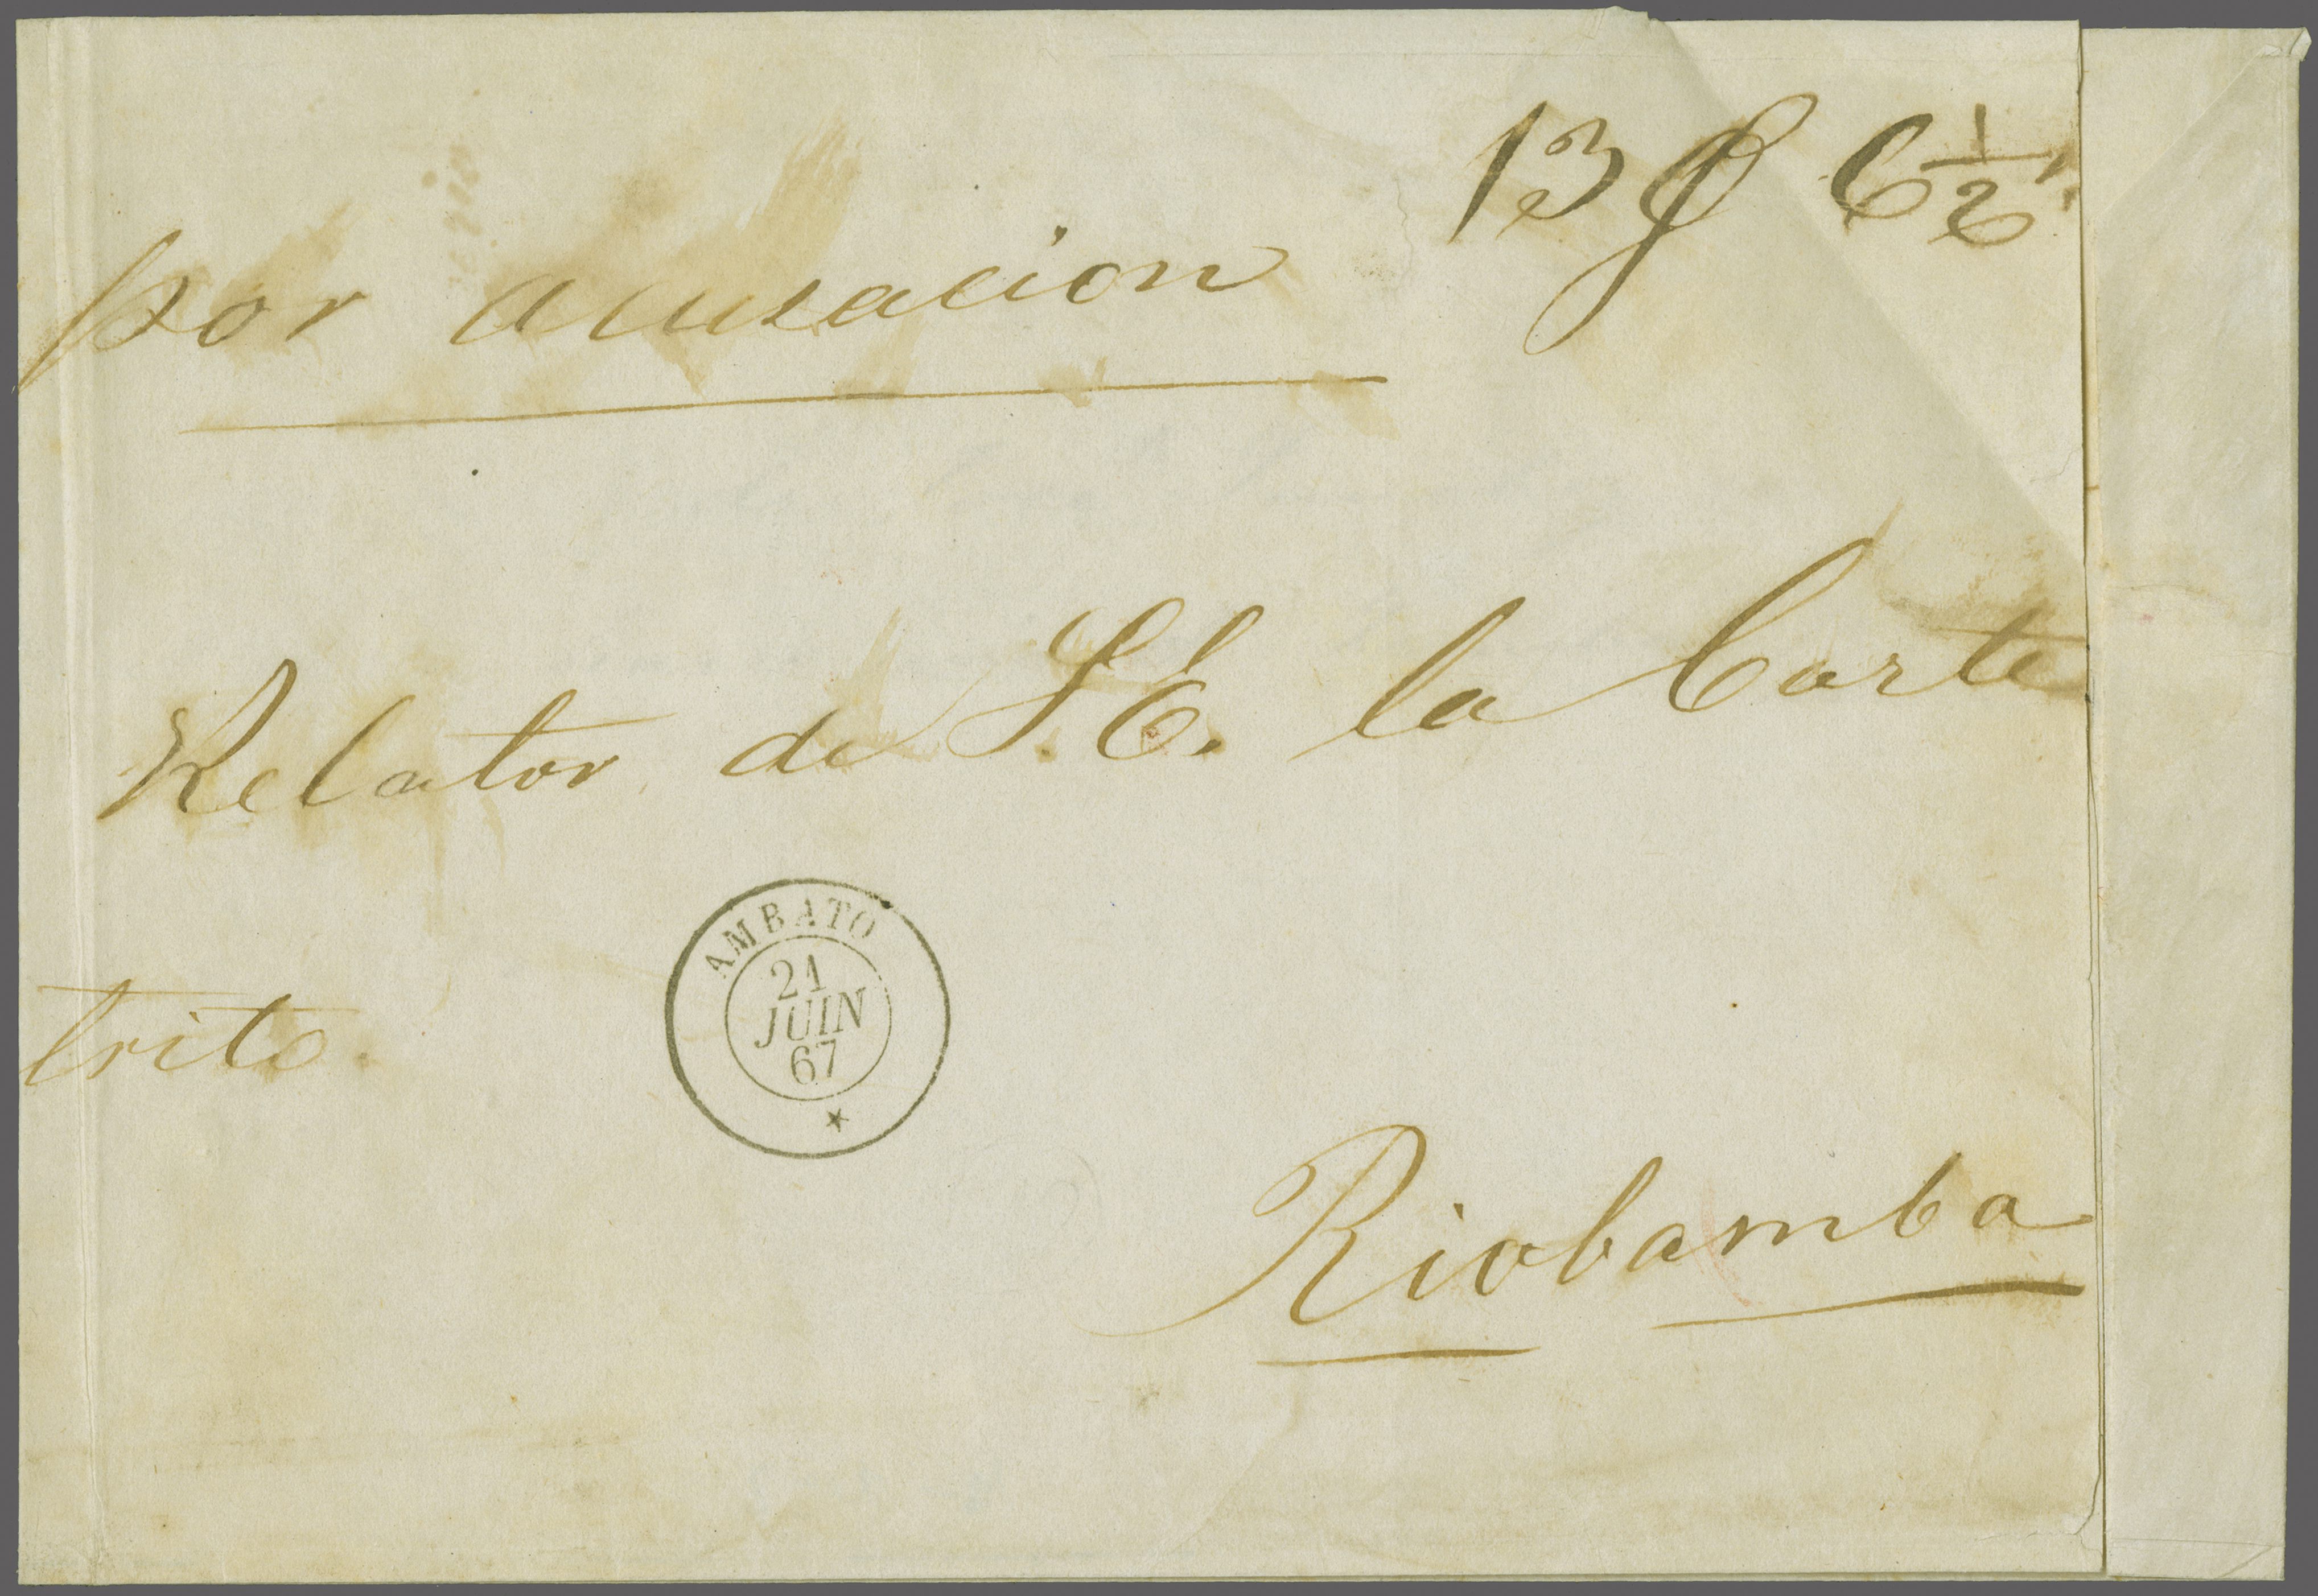 13 P 6 1/2
por acusacion
Relator de S.E. la Corte
trito.
AMBATO
21
JUIN
67
Riobamba